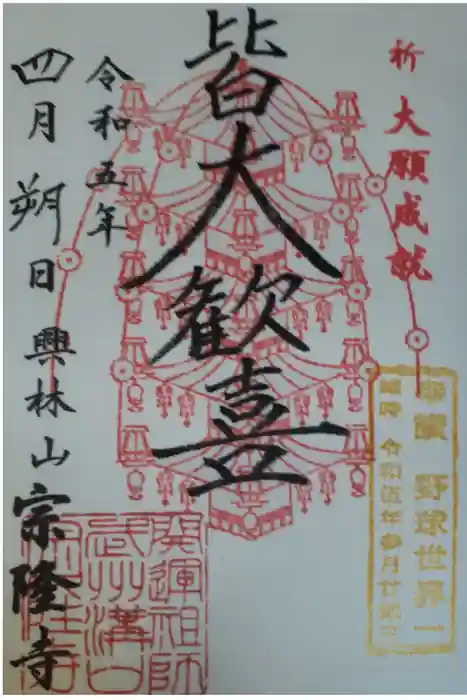 祈 大願成就
野球世界一
令和五年参月廿
皆大歓喜
令和五年
四月朔日 興林山 宗隆寺
開運祖師
武州溝口
宗隆寺